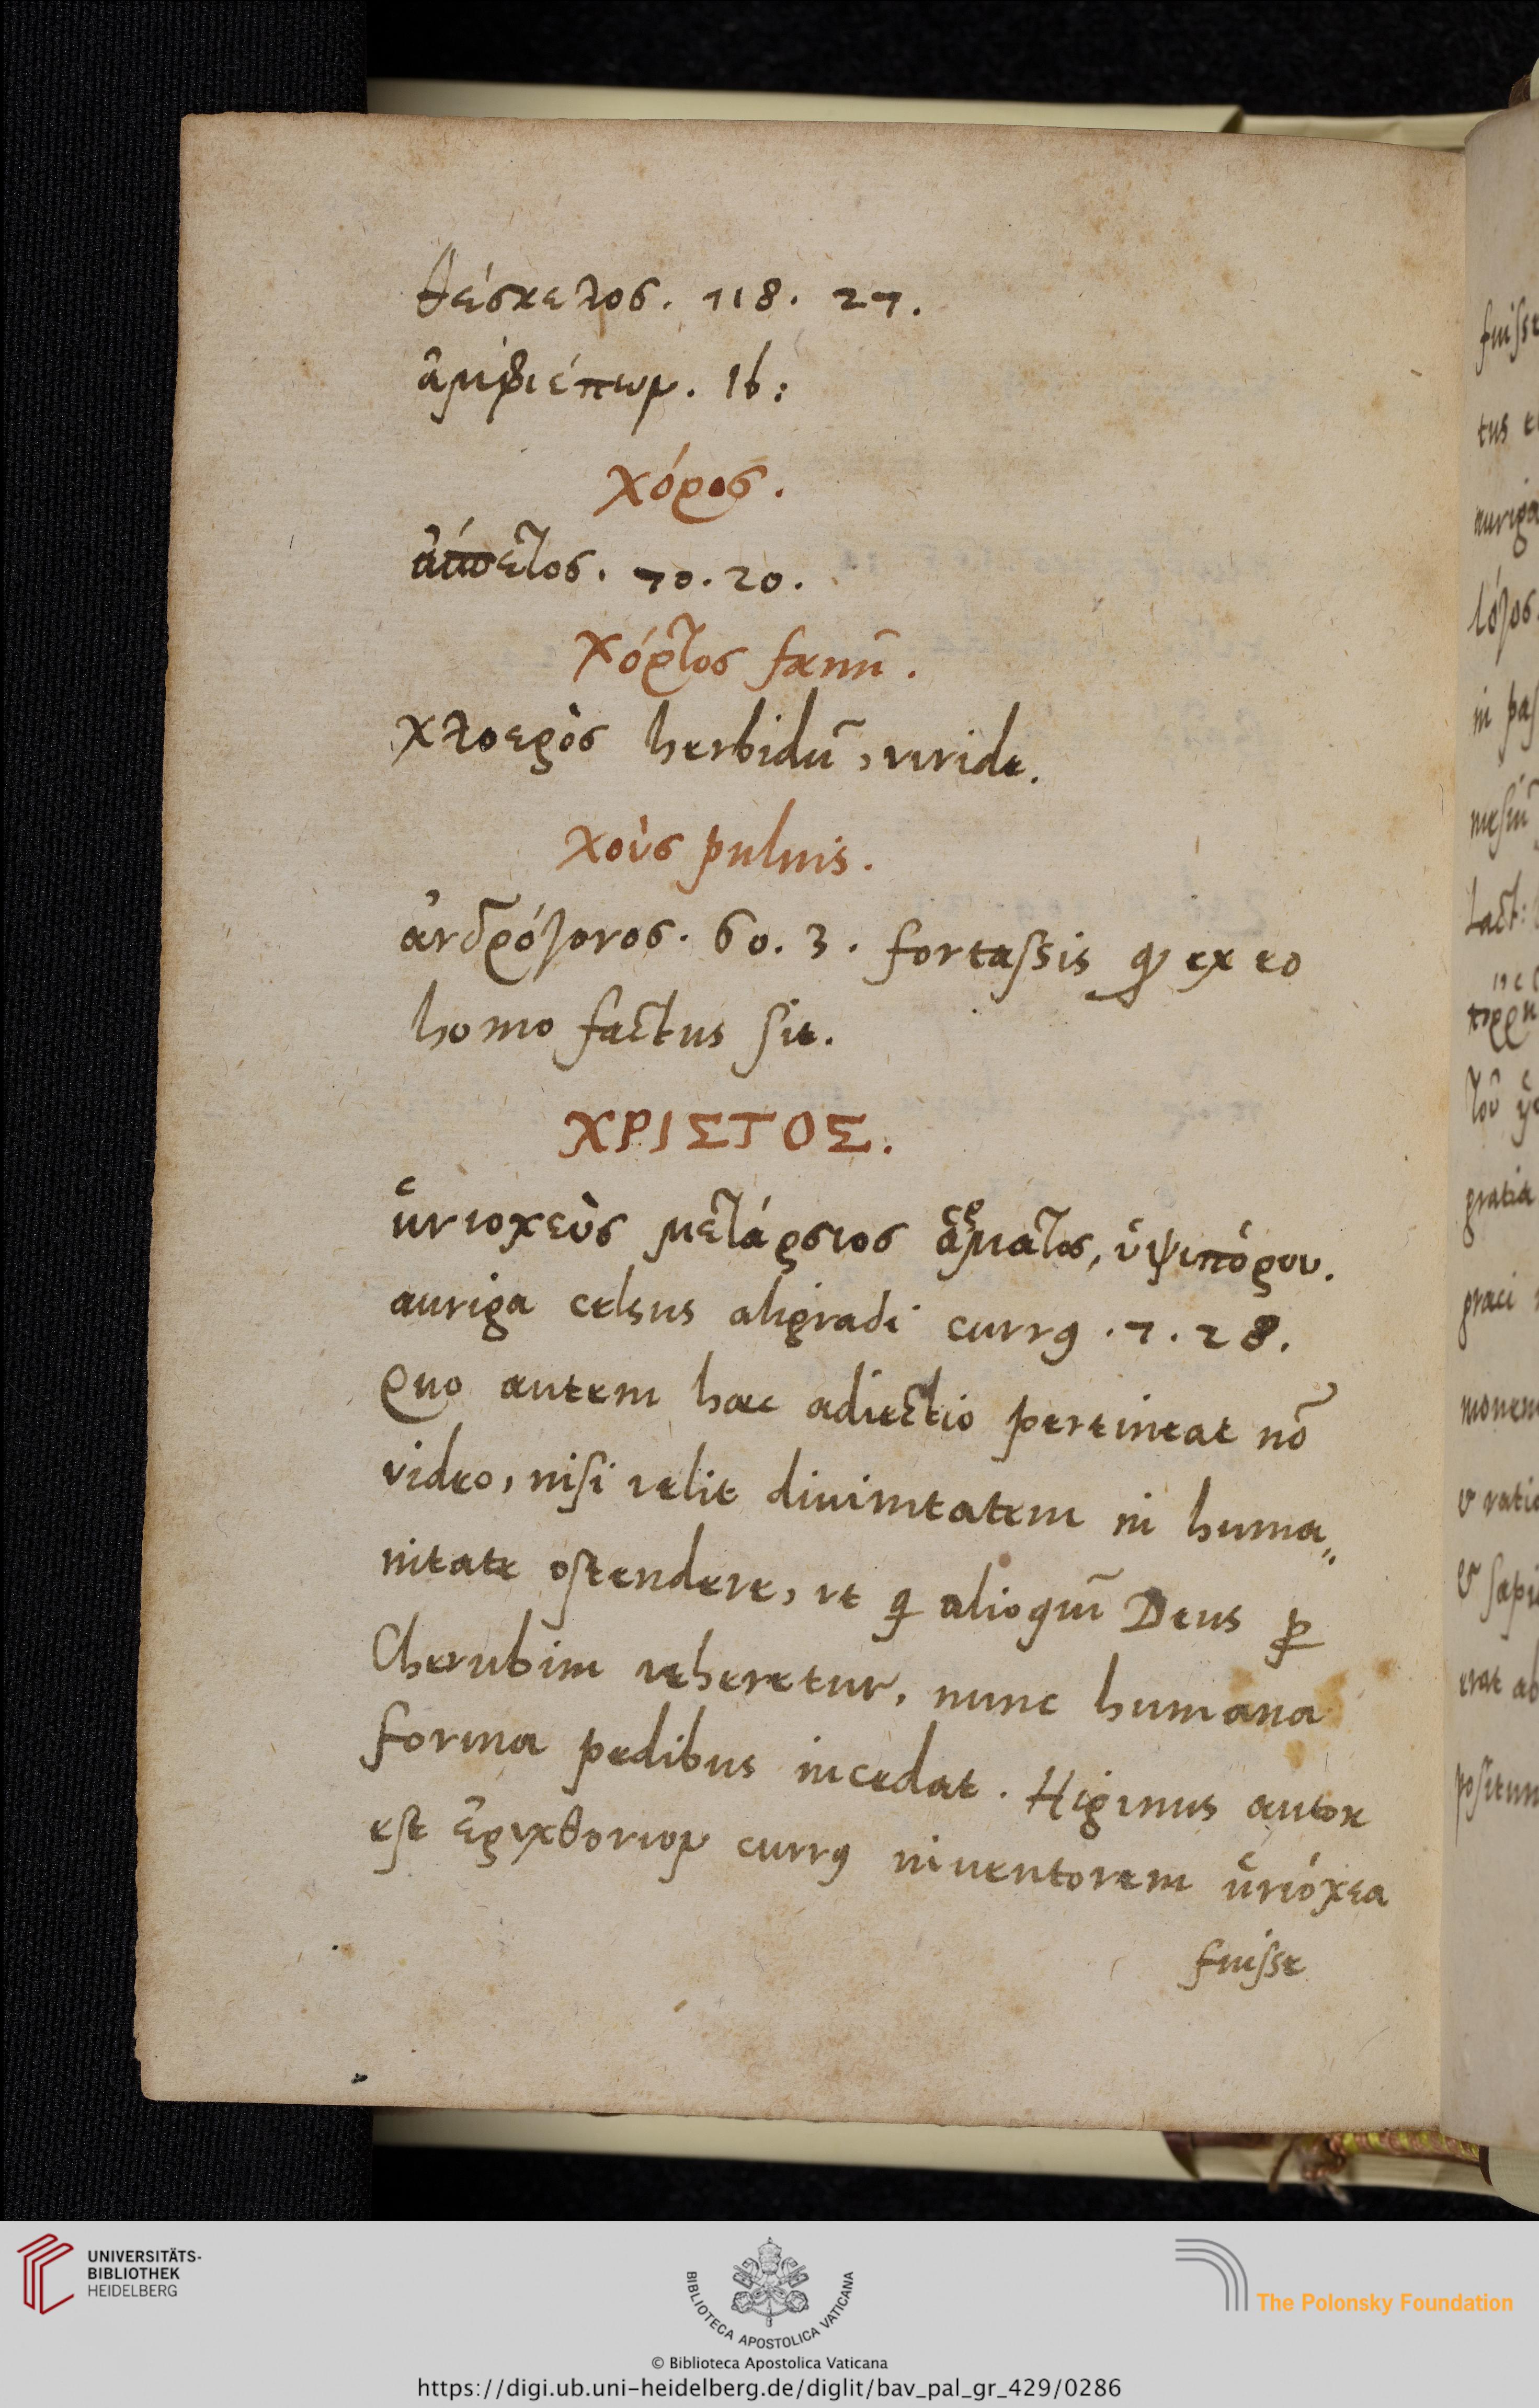 θέσκελος. 118. 27.
ἀμφιέπων. Ib:
χόρος.
ἄσπετος. 70. 20.
χόρτος fænũ.
χλοερὸς herbidũ, viride.
χοὺς puluis.
ἀνδρόγονος. 60. 3. fortassis ꝙ ex eo
homo factus sit.
ΧΡΙΣΤΟΣ.
ἡνιοχεὺς μετάρσιος ἅρματος, ὑψιπόρου.
auriga celsus aligradi currꝰ. 7. 28.
Quo autem hæc adiectio pertineat nõ
video, nisi velit diuinitatem in huma„
nitate ostendere, vt q alioquĩ Deus ꝑ
Cherubim veheretur, nunc humana
forma pedibus incedat. Higinus autor
est ἐριχθονιον currꝰ inuentorem ἡνιόχεα
fuisse
fuisse
tus
auriga
λόγος
in
Tact:
τοῦ
gratia
græci
ratio
erat ab
positum
UNIVERSITÄTS-
BIBLIOTHEK
HEIDELBERG
BIBLIOTECA APOSTOLICA VATICANA
The Polonsky Foundation
© Biblioteca Apostolica Vaticana
https://digi.ub.uni-heidelberg.de/diglit/bav_pal_gr_429/0286